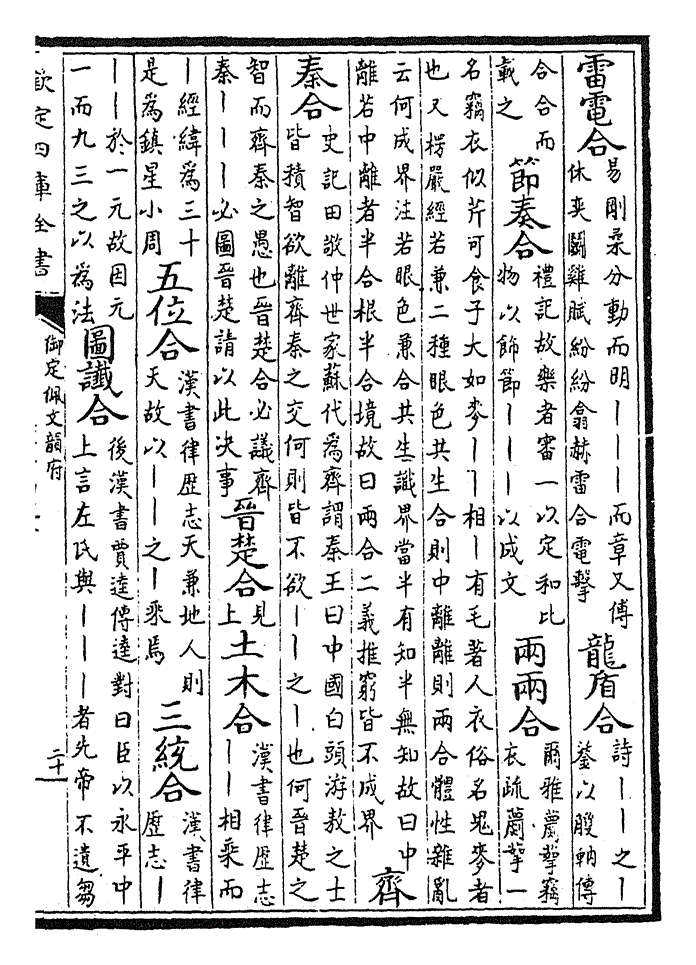 雷電合
易剛柔分動而明｜｜｜而章又傅
休奕鬬雞賦紛紛翕赫雷合電擊
龍盾合
詩｜｜之｜
鋈以觼軜傳
合合而
載之
節奏合
禮記故樂者審一以定和比
物以飾節｜｜｜以成文
兩兩合
爾雅蘮蒘竊
衣疏蘮蒘一
名竊衣似芹可食子大如麥｜｜相｜有毛著人衣俗名鬼麥者
也又楞嚴經若兼二種眼色共生合則中離離則兩合體性雜亂
云何成界注若眼色兼合共生識界當半有知半無知故曰中
離若中離者半合根半合境故曰兩合二義推窮皆不成界
齊
秦合
史記田敬仲世家蘇代為齊謂秦王曰中國白頭游敖之士
皆積智欲離齊秦之交何則皆不欲｜｜之｜也何晉楚之
智而齊秦之愚也晉楚合必議齊
秦｜｜｜必圖晉楚請以此决事
晉楚合
見
上
土木合
漢書律歴志
｜｜相乘而
｜經緯為三十
是為鎮星小周
五位合
漢書律歴志天兼地人則
天故以｜｜之｜乘焉
三統合
漢書律
歴志｜
｜｜於一元故因元
一而九三之以為法
圖讖合
後漢書賈逵傳逵對曰臣以永平中
上言左氏與｜｜｜者先帝不遺芻
欽定四庫全書
御定佩文韻府
二十